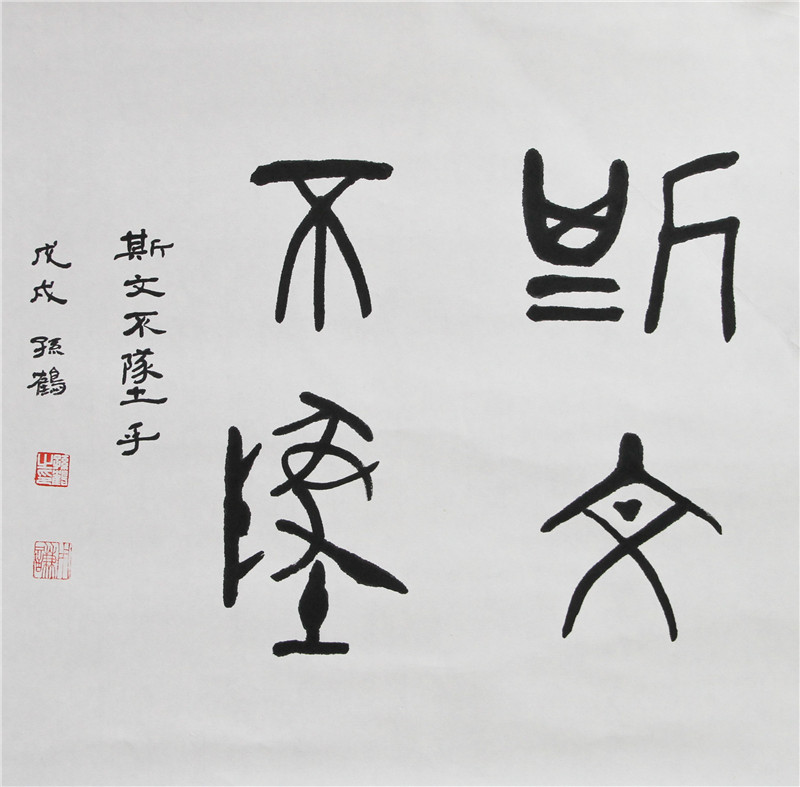 斯文
不墜
斯文不墜乎
戊戌 孫鶴